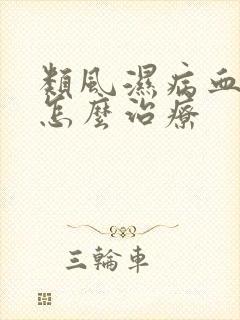 類風濕病血
怎麼治療
三輪車